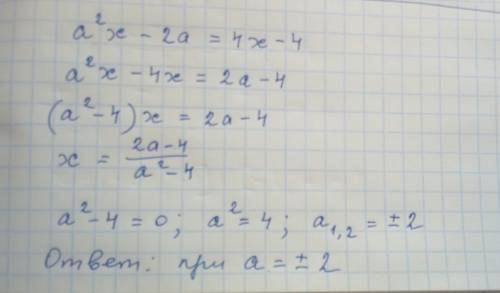 a²x - 2a = 4x - 4
a²x - 4x = 2a - 4
(a² - 4)x = 2a - 4
x = (2a - 4)/(a² - 4)
a² - 4 = 0; a² = 4; a₁,₂ = ±2
Ответ: при a = ±2